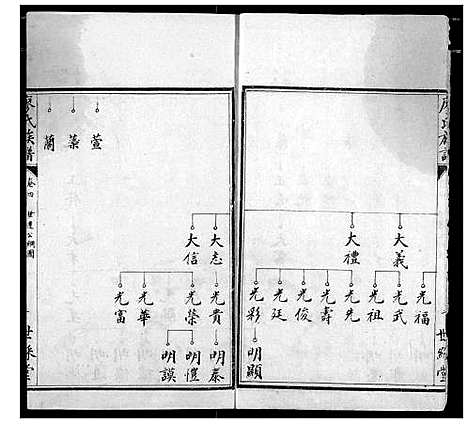 廖氏族譜
世綵堂
大義
大禮
光福
光武
光祖
光先
光壽
光俊
光廷
光彩
明顯
大志
大信
光貴
光榮
光華
光富
明泰
明愷
明謨
萱
蘭
廖氏族譜
卷四
世綵堂